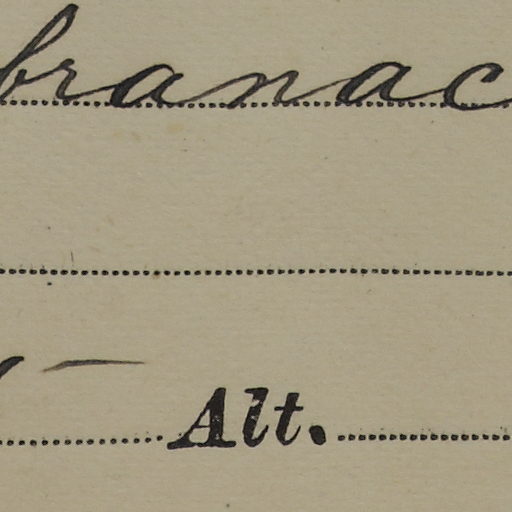 branac
Alt.